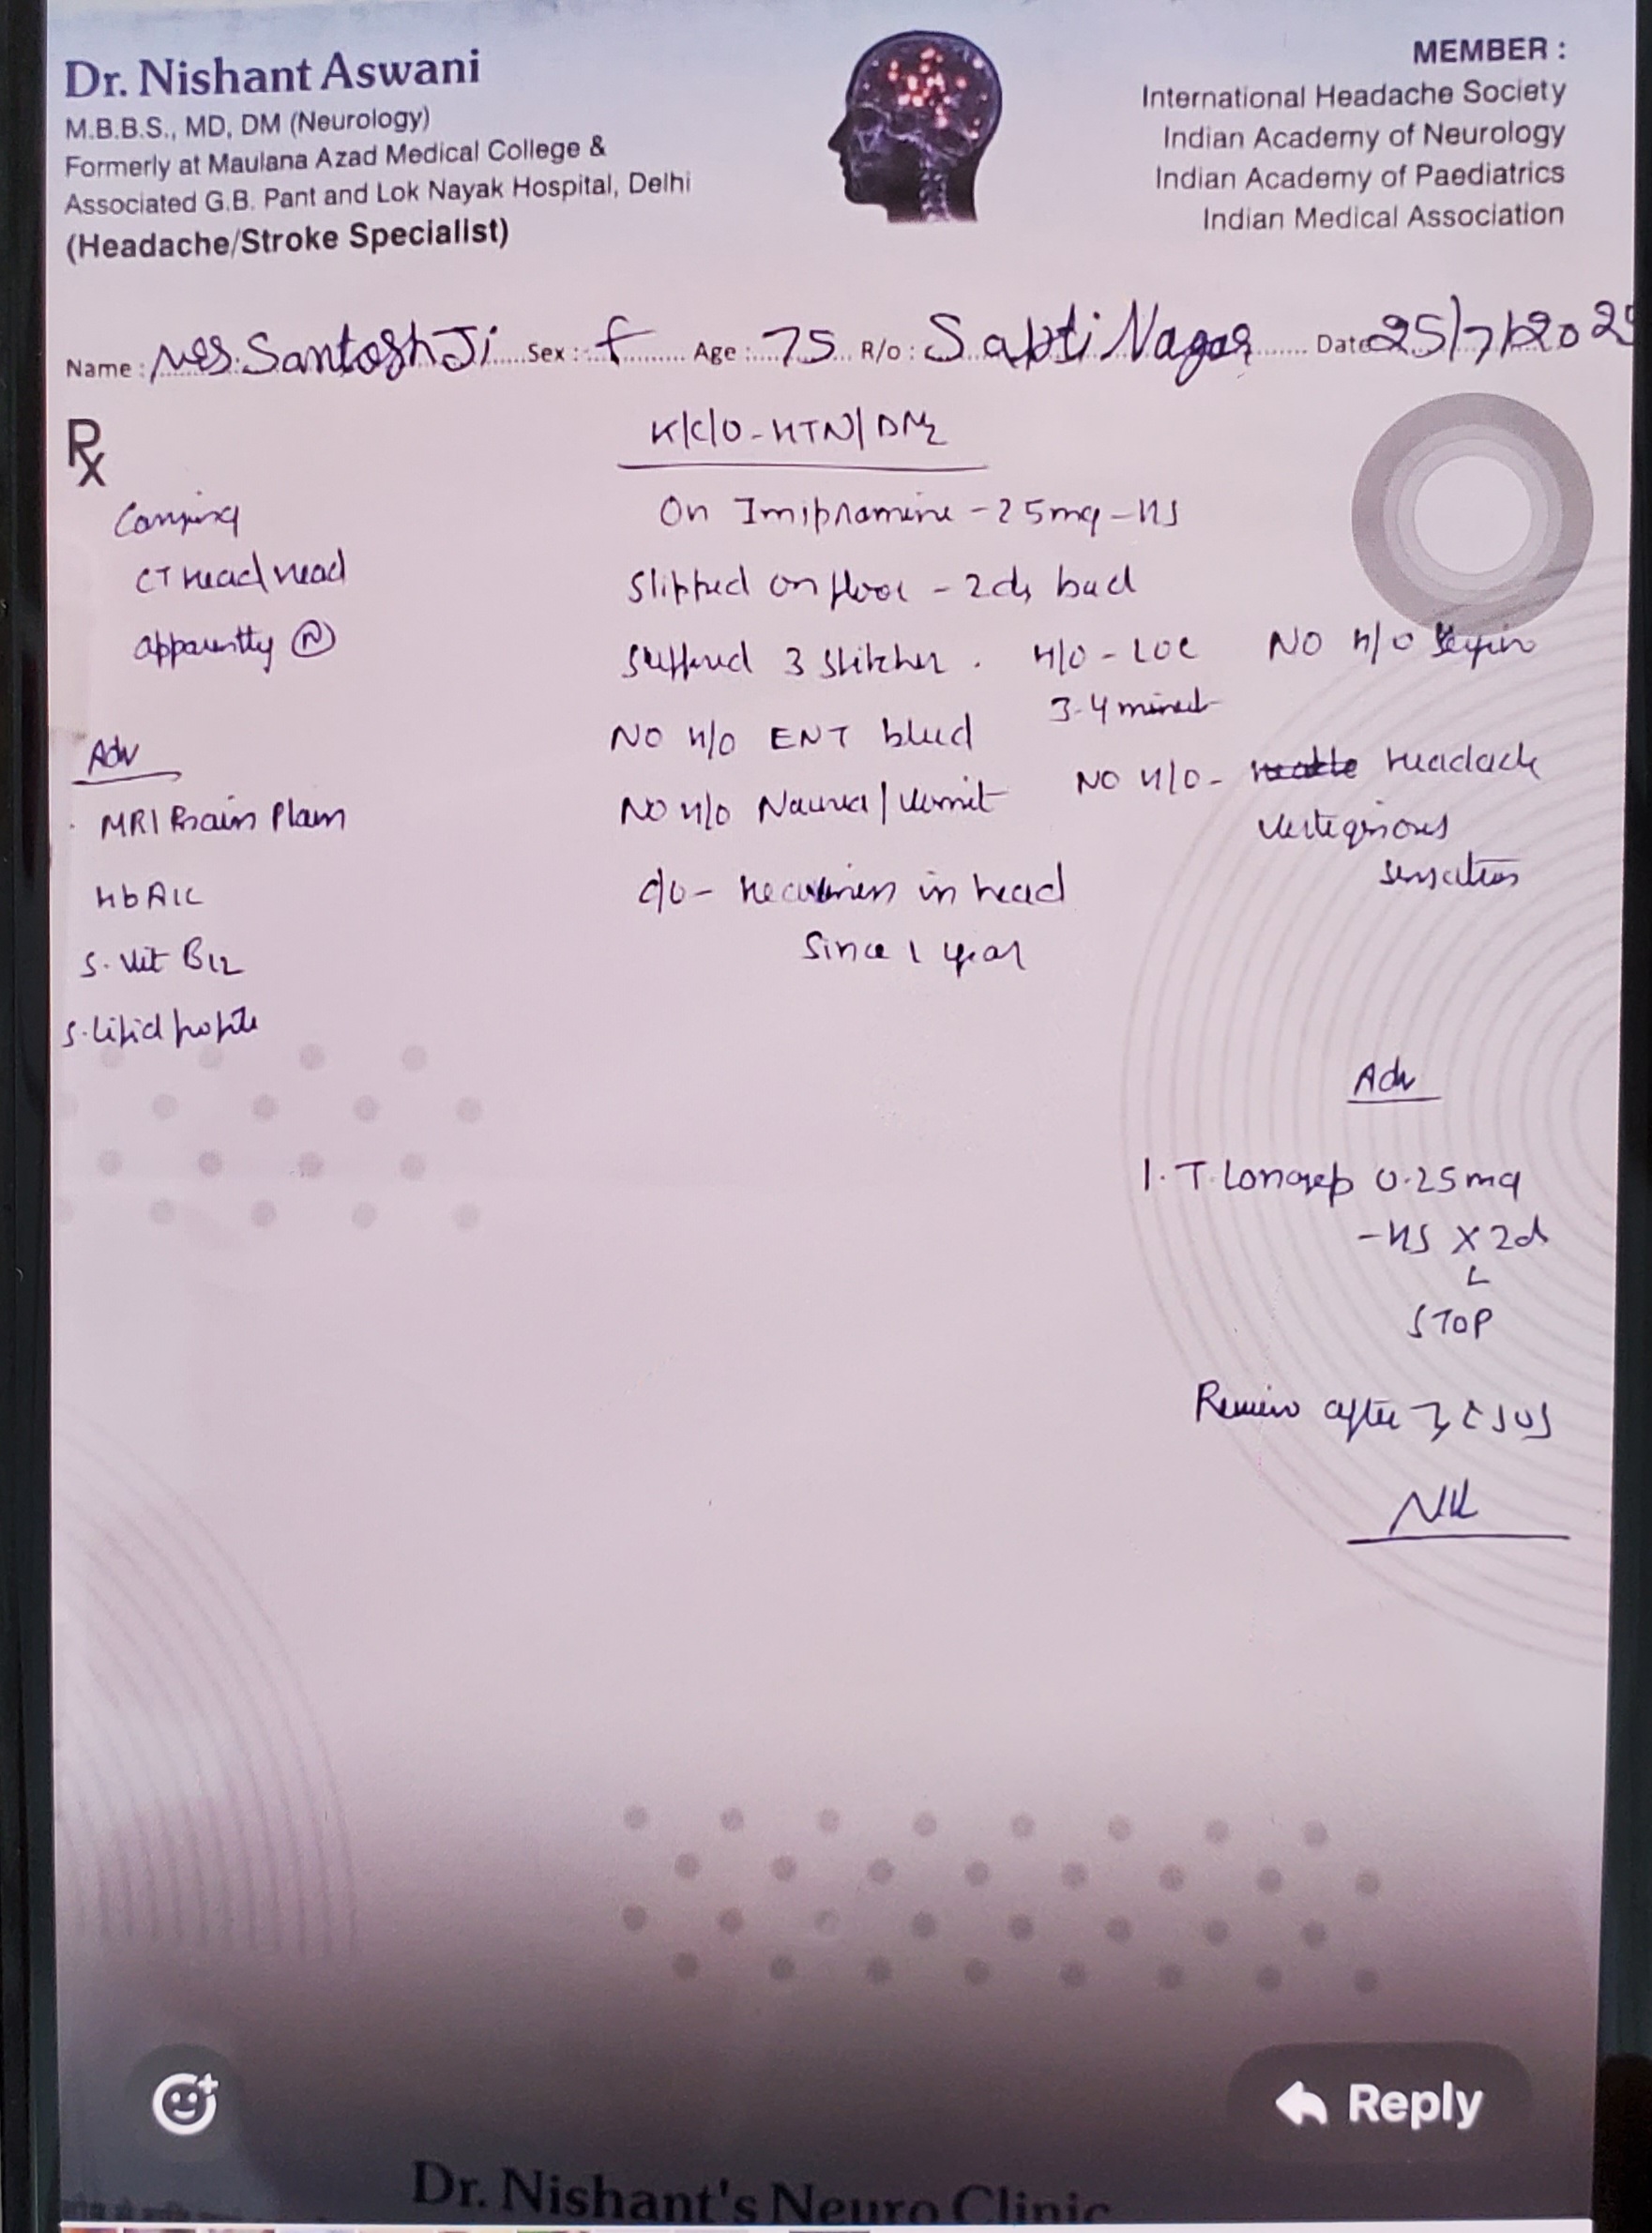 Dr. Nishant Aswani
M.B.B.S., MD, DM (Neurology)
Formerly at Maulana Azad Medical College &
Associated G.B. Pant and Lok Nayak Hospital, Delhi
(Headache/Stroke Specialist)
MEMBER :
International Headache Society
Indian Academy of Neurology
Indian Academy of Paediatrics
Indian Medical Association
Name : Mrs. Santosh Ji Sex : f Age : 75 R/o : Sapti Nagar Date 25/7/202
Rx
K/C/O - HTN/DM2
On Imipramine - 25mg - HS
CT head head
Slipped on floor - 2d back
apparently N
suffered 3 stitches . H/O - LOC NO H/O
3-4 minut
NO H/O ENT bleed
NO H/O - headache
vertiginous
sensation
NO H/O Nausea / vomit
c/o - heaviness in head
Since 1 year
Adv
MRI Brain Plain
HbA1C
S. Vit B12
S. Lipid profile
Adv
1. T. Lonazep 0.25mg
- HS X 2d
STOP
Review after 7d c SOS
Reply
Dr. Nishant's Neuro Clinic